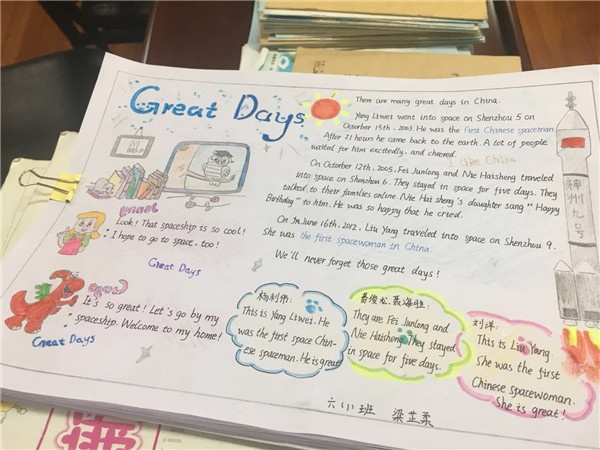 Great Days
There are many great days in China.
Yang Liwei went into space on Shenzhou 5 on
Octorber 15th, 2003. He was the first Chinese spaceman.
After 21 hours he came back to the earth. A lot of people
waited for him excitedly, and cheered.
I like China
On October 12th, 2005, Fei Junlong and Nie Haisheng traveled
into space on Shenzhou 6. They stayed in space for five days. They
talked to their families online. Nie Hai sheng's daughter sang "Happy
Birthday" to him. He was so happy that he cried.
On June 16th, 2012, Liu Yang traveled into space on Shenzhou 9.
She was the first spacewoman in China.
We'll never forget those great days!
神州九号
Look! That spaceship is so cool!
I hope to go to space, too!
Great Days
It's so great! Let's go by my
spaceship. Welcome to my home!
Great Days
杨利伟:
This is Yang Liwei. He
was the first space Chin-
ese spaceman. He is great
费俊龙、聂海胜:
They are Fei Junlong and
Nie Haisheng. They stayed
in space for five days.
刘洋:
This is Liu Yang.
She was the first
Chinese spacewoman.
She is great!
六(1)班 梁芷柔